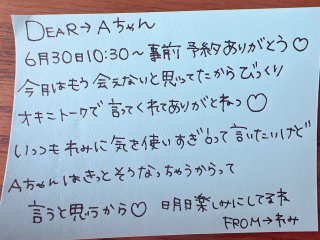 DEAR→Aちゃん
6月30日10:30～事前予約ありがとう♡
今月はもう会えないと思ってたからびっくり
オキニトークで言ってくれてありがとねっ♡
いっつもれみに気を使いすぎ!って言いたいけど
Aちゃんはきっとそうなっちゃうからって
言うと思うから♡ 明日楽しみにしてるネ
FROM→れみ